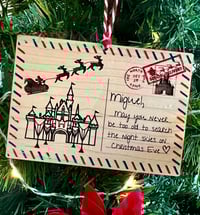 Miguel,
May you Never
be too old to search
the Night skies on
Christmas Eve ♡